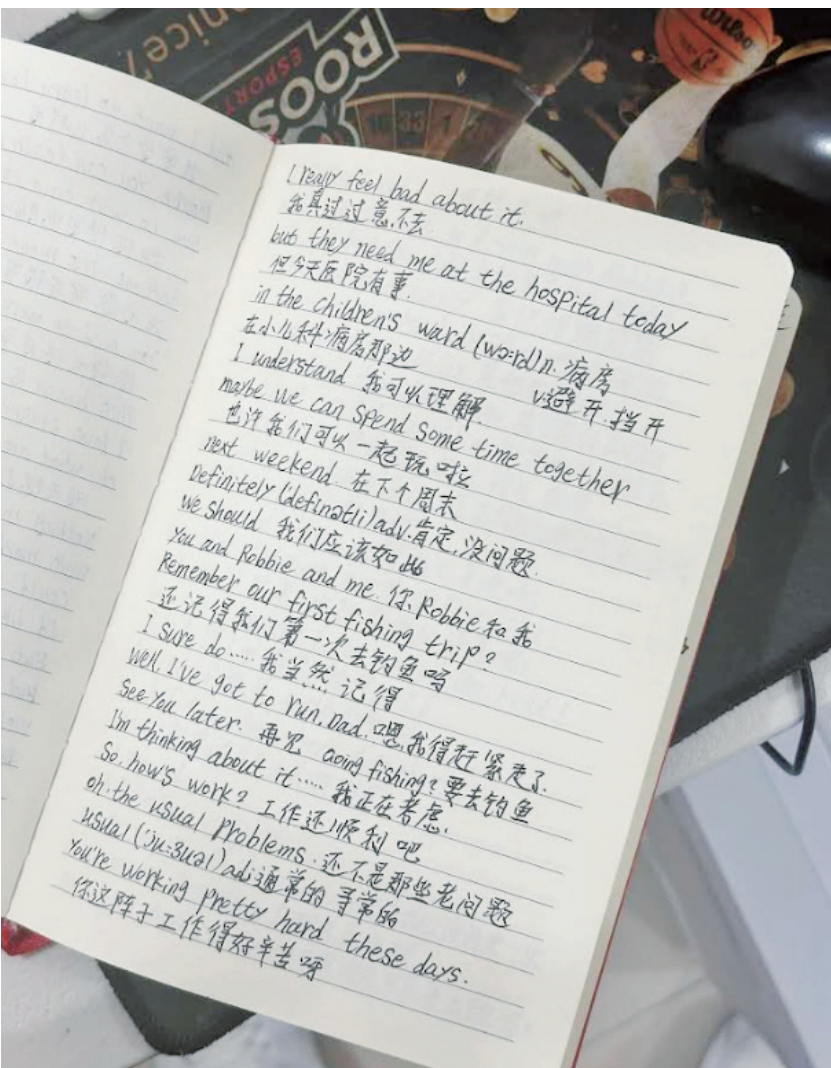 onice?
ROOS
ESPORT
Wilson
I really feel bad about it.
我真过过意不去
but they need me at the hospital today
但今天医院有事.
in the children's ward (wɔ:rd)n.病房
在小儿科病房那边 v.避开.挡开
I understand 我可以理解.
maybe we can spend some time together
也许我们可以一起玩啦
next weekend. 在下个周末
Definitely (definətli)adv.肯定,没问题.
we should 我们应该如此
You and Robbie and me. 你.Robbie和我
Remember our first fishing trip?
还记得我们第一次去钓鱼吗
I sure do.....我当然记得
Well. I've got to run.Dad.嗯,我得赶紧走了.
See You later. 再见 Going fishing?要去钓鱼
I'm thinking about it..... 我正在考虑.
So.how's work? 工作还顺利吧
oh.the usual problems.还不是那些老问题
usual ('ju:ʒuəl)adj.通常的 寻常的
You're working pretty hard these days.
你这阵子工作得好辛苦呀